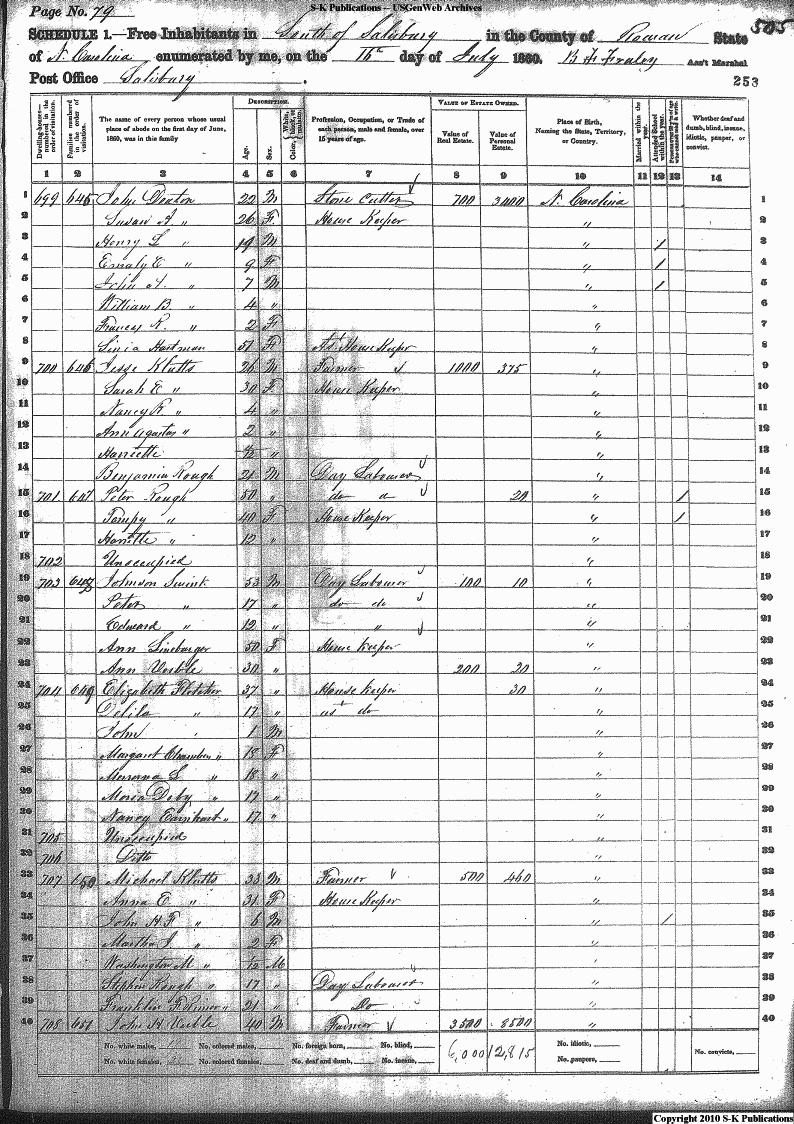 S-K Publications – USGenWeb Archives
Page No. 79
505
SCHEDULE 1.—Free Inhabitants in South of Salisbury in the County of Rowan State
of N. Carolina enumerated by me, on the 16th day of July 1860. B F Fraley Ass't Marshal
Post Office Salisbury.
253
Dwelling-houses—numbered in the order of visitation.
Families numbered in the order of visitation.
The name of every person whose usual place of abode on the first day of June, 1860, was in this family
DESCRIPTION.
Age.
Sex.
Color, White, black, or mulatto.
Profession, Occupation, or Trade of each person, male and female, over 15 years of age.
VALUE OF ESTATE OWNED.
Value of Real Estate.
Value of Personal Estate.
Place of Birth, Naming the State, Territory, or Country.
Married within the year.
Attended School within the year.
Whether deaf and dumb, blind, insane, idiotic, pauper, or convict.
1 2 3 4 5 6 7 8 9 10 11 12 13 14
1 699 645 John Deaton 22 M Stone Cutter 700 3000 N. Carolina 1
2 Susan A " 26 F House Keeper " 2
3 Henry L " 19 M " / 3
4 Emaly E " 9 F " / 4
5 John " 7 M " / 5
6 William B. " 4 " " 6
7 Frances R. " 2 F " 7
8 Hartman 51 F House Keeper " 8
9 700 646 Jesse Klutts 26 M Farmer 1000 375 " 9
10 Sarah E " 30 F House Keeper " 10
11 Nancy R " 4 " " 11
12 Ann Agustas " 2 " " 12
13 Harriette " " 13
14 Benjamin Rough 21 M Day Labourer " 14
15 701 647 Peter Rough 50 " do 20 " / 15
16 Tempy " 40 F House Keeper " / 16
17 " 12 " " 17
18 702 Unoccupied " 18
19 703 648 Johnson Swink 53 M Day Labourer 100 10 " 19
20 Peter " 17 " do do " 20
21 Edward " 12 " " " 21
22 Ann Lineburger 50 F House Keeper " 22
23 Ann 30 " 200 20 " 23
24 704 649 Elizabeth Fletcher 37 " House Keeper 30 " 24
25 Delila " 17 " do " 25
26 John 1 M " 26
27 Margaret Chambers " 18 F " 27
28 L " 18 " " 28
29 17 " " 29
30 Nancy Earnhart " 17 " " 30
31 705 Unoccupied " 31
32 706 Ditto " 32
33 707 650 Michael Klutts 33 M Farmer 500 460 " 33
34 Anna E " 31 F House Keeper " 34
35 John H F " 6 M " / 35
36 Martha J. " 2 F " 36
37 Washington M " M " 37
38 Stephen Rough " 17 " Day Labourer " 38
39 Franklin F. " 21 " Do " 39
40 708 651 John H 40 M Farmer 3500 8500 " 40
No. white males, No. colored males, No. foreign born, No. blind, No. idiotic, No. convicts,
No. white females, No. colored females, No. deaf and dumb, No. insane, 6,000 12,815 No. paupers,
Copyright 2010 S-K Publications